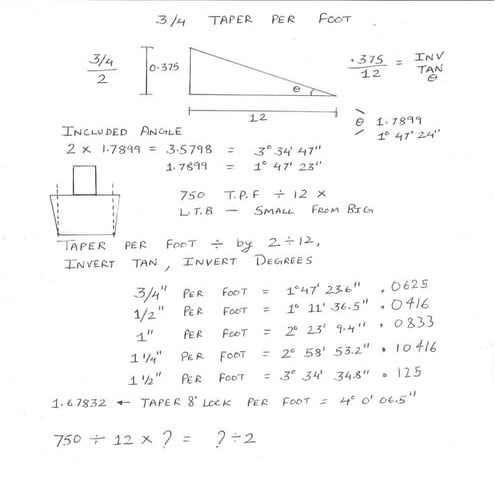 3/4 TAPER PER FOOT
3/4
2
0.375
θ
12
.375
12
= INV TAN θ
θ 1.7899
1° 47' 24"
INCLUDED ANGLE
2 x 1.7899 = 3.5798 = 3° 34' 47"
1.7899 = 1° 47' 23"
750 T.P.F ÷ 12 x
L.T.B - SMALL FROM BIG
TAPER PER FOOT ÷ by 2 ÷ 12,
INVERT TAN, INVERT DEGREES
3/4" PER FOOT = 1° 47' 23.6" .0625
1/2" PER FOOT = 1° 11' 36.5" .0416
1" PER FOOT = 2° 23' 9.4" .0833
1 1/4" PER FOOT = 2° 58' 53.2" .10416
1 1/2" PER FOOT = 3° 34' 34.8" .125
1.67832 ← TAPER 8° LOCK PER FOOT = 4° 0' 06.5"
750 ÷ 12 x ? = ? ÷ 2